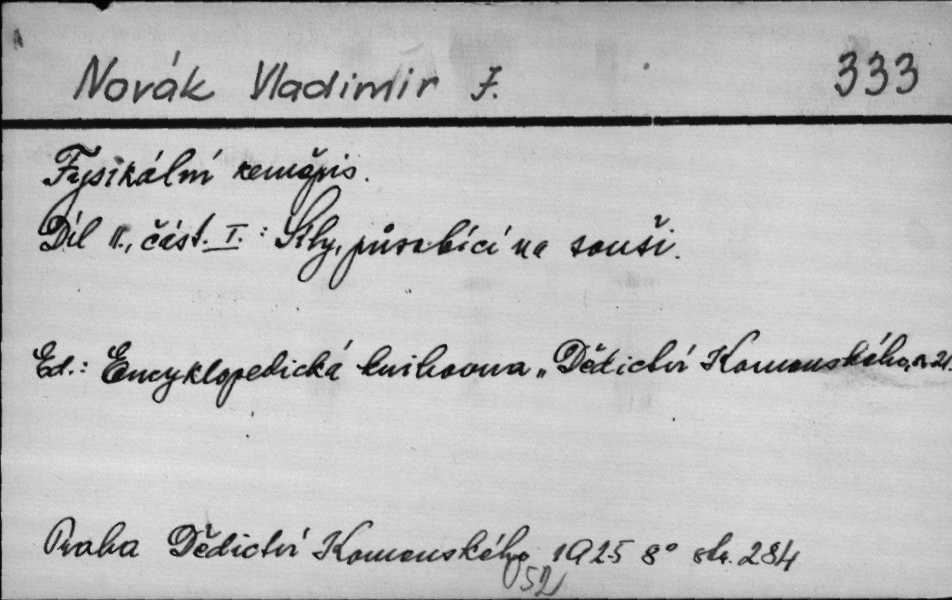 Novák Vladimir J. 333
Fysikální zeměpis.
Díl II., část. I.: Síly, působící na souši.
Ed.: Encyklopedická knihovna „Dědictví Komenského, č. 21.
Praha Dědictví Komenského 1925 8° str. 284
52)